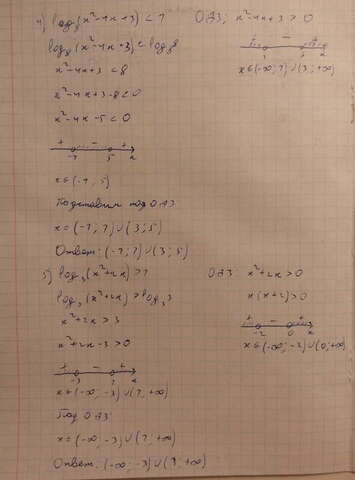 4) log₈(x²-4x+3) < 1   ОДЗ: x²-4x+3 > 0
log₈(x²-4x+3) < log₈8
+ - +
1 3 x
x²-4x+3 < 8   x∈(-∞; 1)∪(3; +∞)
x²-4x+3-8 < 0
x²-4x-5 < 0
+ - +
-1 5 x
x∈(-1; 5)
Подставим под ОДЗ
x = (-1; 1)∪(3; 5)
Ответ: (-1; 1)∪(3; 5)
5) log₃(x²+2x) > 1   ОДЗ: x²+2x > 0
log₃(x²+2x) > log₃3   x(x+2) > 0
x²+2x > 3
+ - +
-2 0 x
x²+2x-3 > 0   x∈(-∞; -2)∪(0; +∞)
+ - +
-3 1 x
x∈(-∞; -3)∪(1; +∞)
Под ОДЗ
x = (-∞; -3)∪(1; +∞)
Ответ: (-∞; -3)∪(1; +∞)